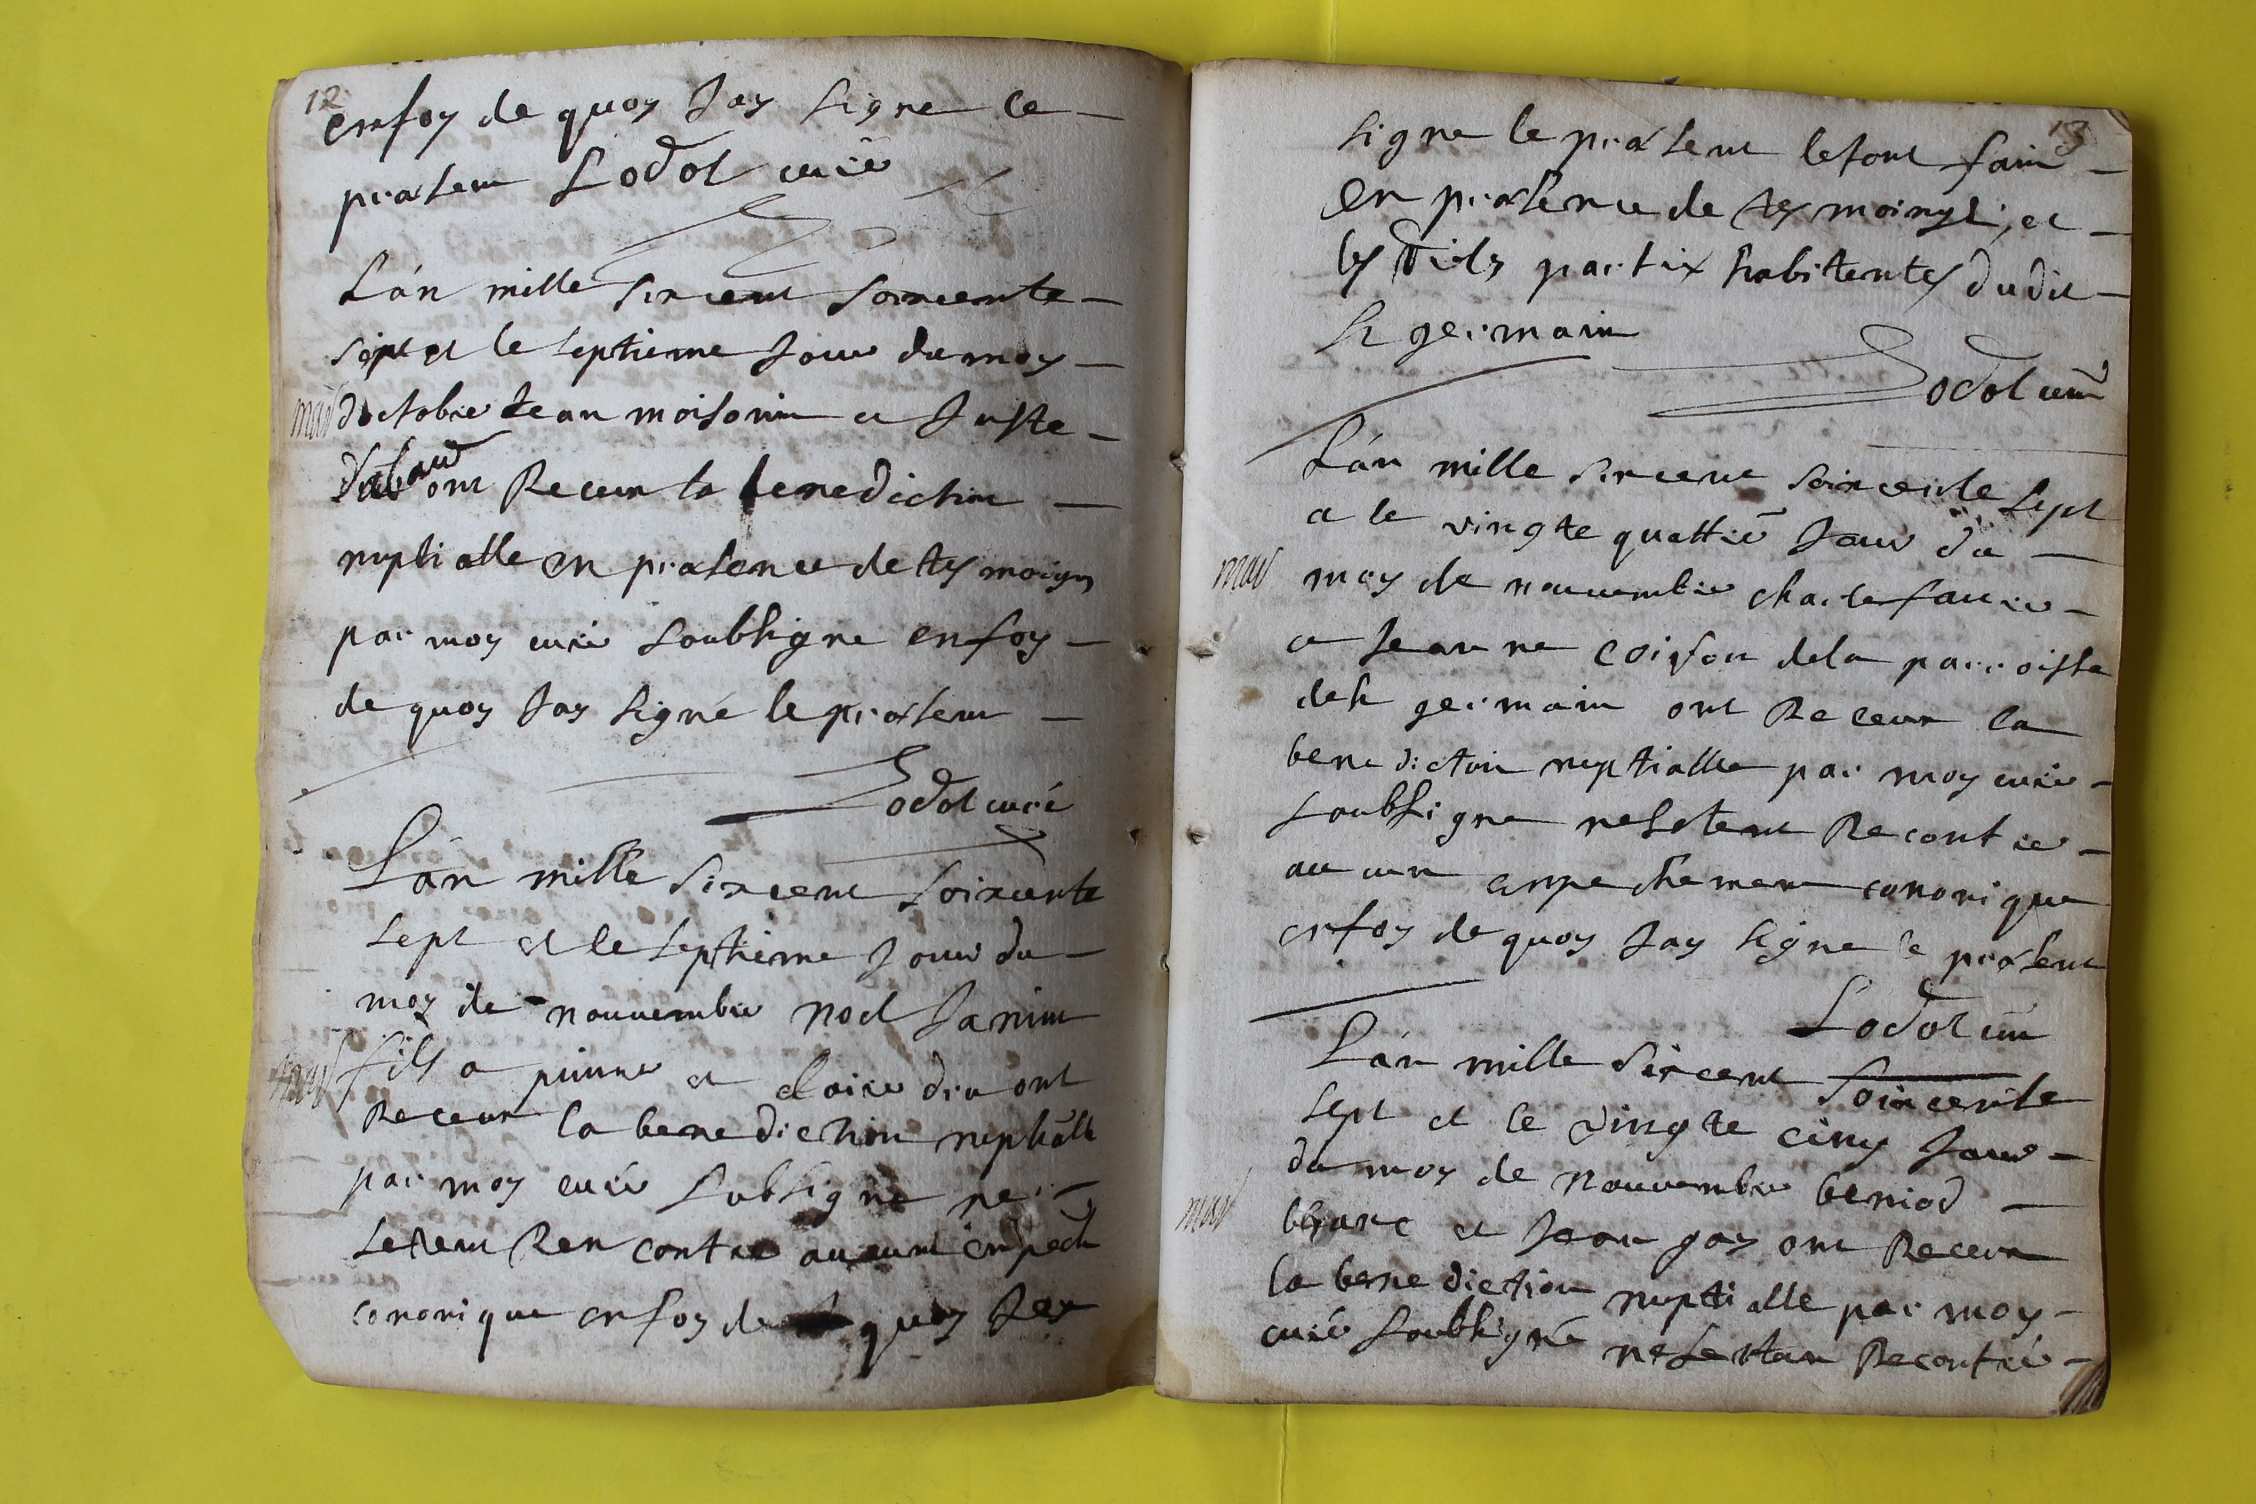 12
enfoy de quoy Jay signe le
pres­ent Lodol curé
L'an mille sixcent soixcente
sept et le septieme Jour du moy
mari
d'octobre Jean moisonin et Juste
ont Receur la benediction
nuptialle en presence de tesmoigns
par moy curé soubsigne enfoy
de quoy Jay signé le present
Lodol curé
L'an mille sixcent soixcente
sept et le septieme Jour du
moy de nouvembre noel Janin
mari
fils a pierre et claire diu ont
Receur la benediction nuptialle
par moy curé subsigne ne
setent Rencontre aucunt enpech
cononique enfoy de quoy Jay
13
signe le present lesont fain
en presence de tesmoings et
les dicts partix habitentes dudit
st germain
Lodol curé
L'an mille sixcent soixcente sept
et le vingte quattrie Jour du
mari
moy de nouvembre charle faure
et Jeanne coifon dela parroisse
de st germain ont Receur la
benediction nuptialle par moy curé
soubsigne nestent Recontre
aucun enpechement cononique
enfoy de quoy Jay signe le present
Lodol curé
L'an mille sixcent soixcente
sept et le vingte cinq Jour
du moy de nouvembre beniod
mari
blanc et Jean gay ont Receur
la benediction nuptialle par moy
curé soubsigné ne sestan Recontré